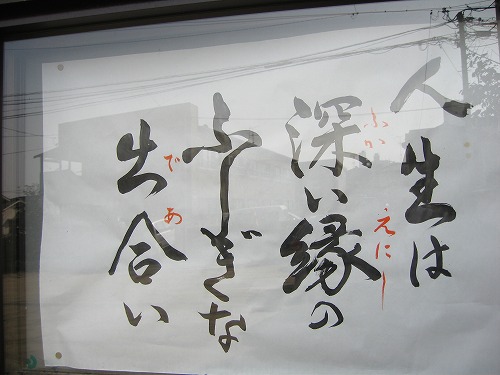 人生は
深い縁の
ふかえにし
ふしぎな
出合い
であ